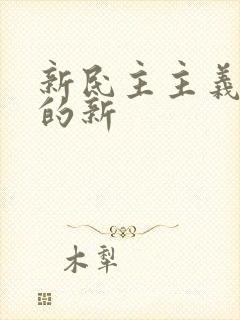 新民主主义
的新
木犁